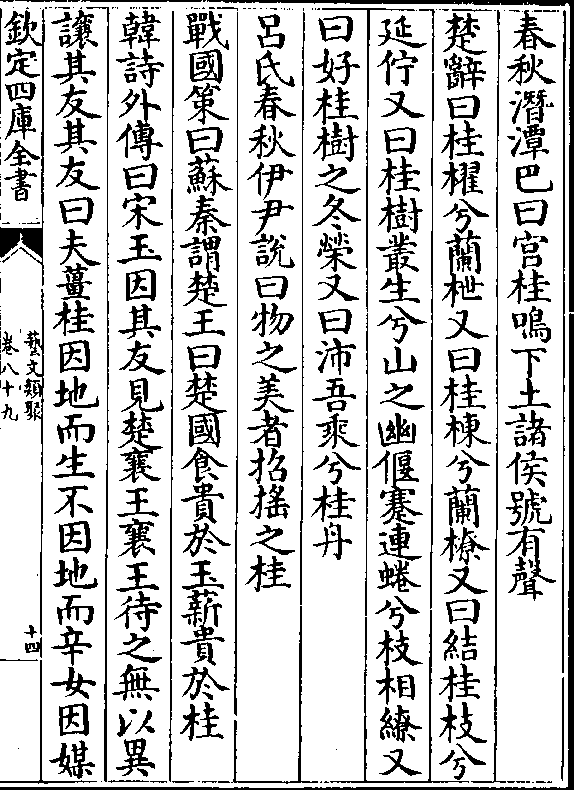 春秋潛潭巴曰宫桂鳴下土諸侯號有聲
楚辭曰桂櫂兮蘭枻又曰桂棟兮蘭橑又曰結桂枝兮
延佇又曰桂樹叢生兮山之幽偃蹇連蜷兮枝相繚又
曰好桂樹之冬榮又曰沛吾乘兮桂舟
吕氏春秋伊尹說曰物之美者招揺之桂
戰國策曰蘇秦謂楚王曰楚國食貴於玉薪貴於桂
韓詩外傳曰宋玉因其友見楚襄王襄王待之無以異
讓其友其友曰夫薑桂因地而生不因地而辛女因媒
欽定四庫全書
藝文類聚
卷八十九
十四